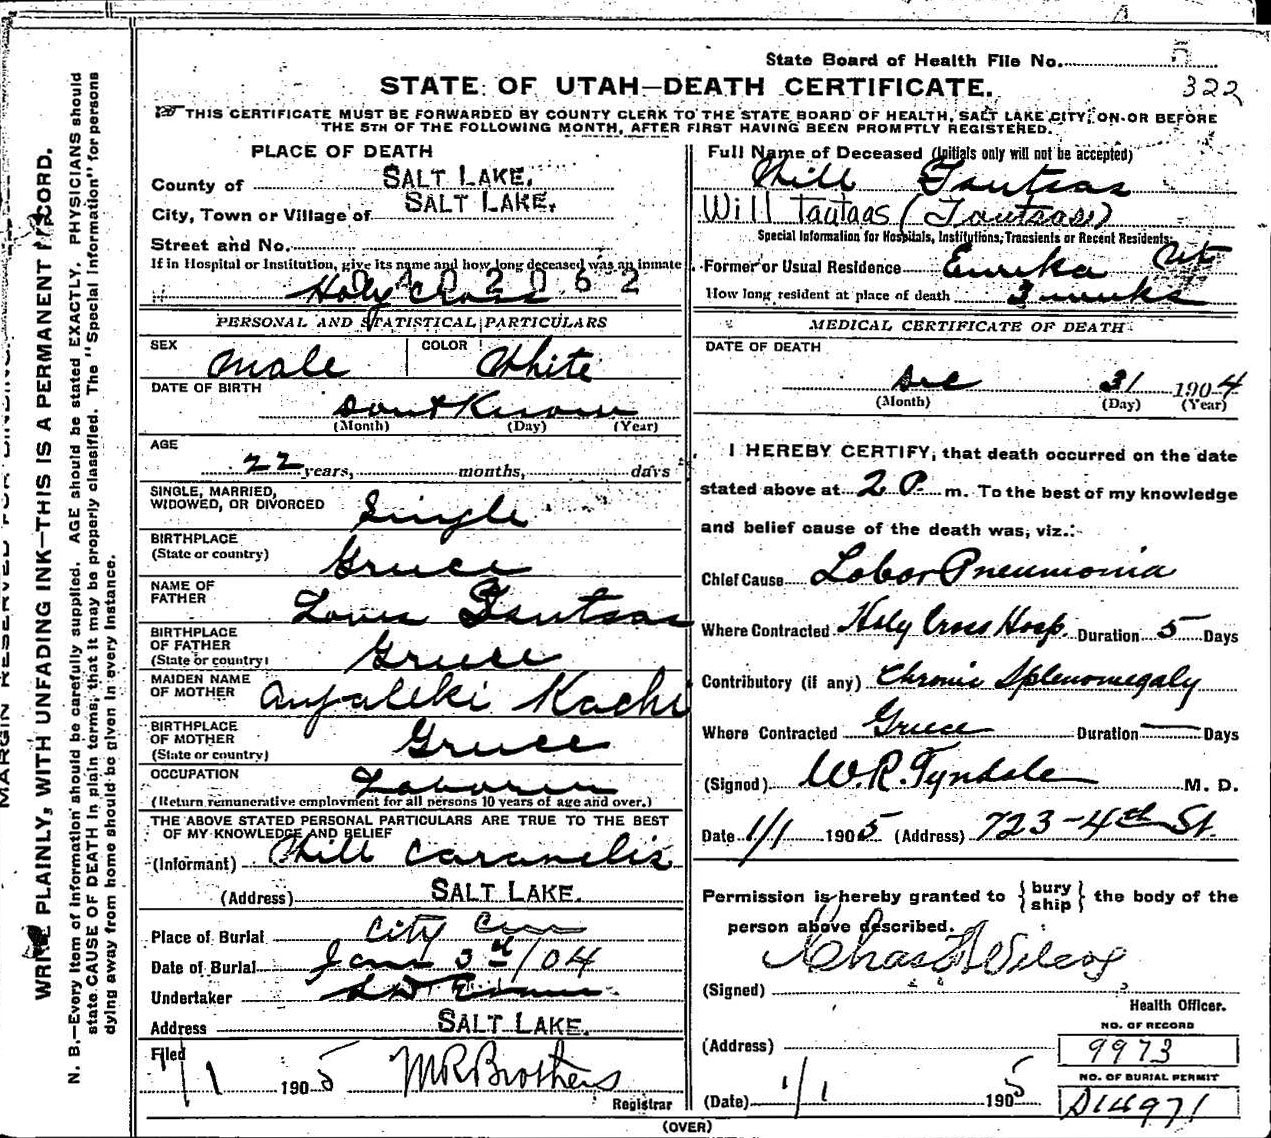 State Board of Health File No. 5
STATE OF UTAH—DEATH CERTIFICATE.
322
THIS CERTIFICATE MUST BE FORWARDED BY COUNTY CLERK TO THE STATE BOARD OF HEALTH, SALT LAKE CITY, ON OR BEFORE
THE 5TH OF THE FOLLOWING MONTH, AFTER FIRST HAVING BEEN PROMPTLY REGISTERED.
PLACE OF DEATH
County of SALT LAKE.
City, Town or Village of SALT LAKE.
Street and No.
If in Hospital or Institution, give its name and how long deceased was an inmate
Holy Cross
2062
PERSONAL AND STATISTICAL PARTICULARS
SEX Male COLOR White
DATE OF BIRTH
dont Know
(Month) (Day) (Year)
AGE
22 years, months, days
SINGLE, MARRIED,
WIDOWED, OR DIVORCED Single
BIRTHPLACE
(State or country) Greece
NAME OF
FATHER Louis Tsutsas
BIRTHPLACE
OF FATHER
(State or country) Greece
MAIDEN NAME
OF MOTHER Anjaleki Kachi
BIRTHPLACE
OF MOTHER
(State or country) Greece
OCCUPATION Laborer
(Return remunerative employment for all persons 10 years of age and over.)
THE ABOVE STATED PERSONAL PARTICULARS ARE TRUE TO THE BEST
OF MY KNOWLEDGE AND BELIEF
(Informant) Will Caramelis
(Address) SALT LAKE.
Place of Burial City Cem
Date of Burial Jan 3rd/04
Undertaker S D Evans
Address SALT LAKE.
Filed
1/1 1905 M R Brothers
Registrar
Full Name of Deceased (Initials only will not be accepted)
Will Tautsas
Will Tautaas (Tautsas)
Special Information for Hospitals, Institutions, Transients or Recent Residents.
Former or Usual Residence Eureka Ut
How long resident at place of death 3 weeks
MEDICAL CERTIFICATE OF DEATH
DATE OF DEATH
Dec 31 1904
(Month) (Day) (Year)
I HEREBY CERTIFY, that death occurred on the date
stated above at 2 P. m. To the best of my knowledge
and belief cause of the death was, viz.:
Chief Cause Lobar Pneumonia
Where Contracted Holy Cross Hosp. Duration 5 Days
Contributory (if any) Chronic Splenomegaly
Where Contracted Greece Duration — Days
(Signed) W. R. Tyndale M. D.
Date 1/1 1905 (Address) 723-4th St.
Permission is hereby granted to {bury ship} the body of the
person above described.
(Signed) Chas F Wilcox
Health Officer.
(Address)
NO. OF RECORD
9973
NO. OF BURIAL PERMIT
(Date) 1/1 1905 D14971
(OVER)
MARGIN RESERVED FOR BINDING.
WRITE PLAINLY, WITH UNFADING INK—THIS IS A PERMANENT RECORD.
N. B.—Every item of information should be carefully supplied. AGE should be stated EXACTLY. PHYSICIANS should
state CAUSE OF DEATH in plain terms, that it may be properly classified. The "Special Information" for persons
dying away from home should be given in every instance.